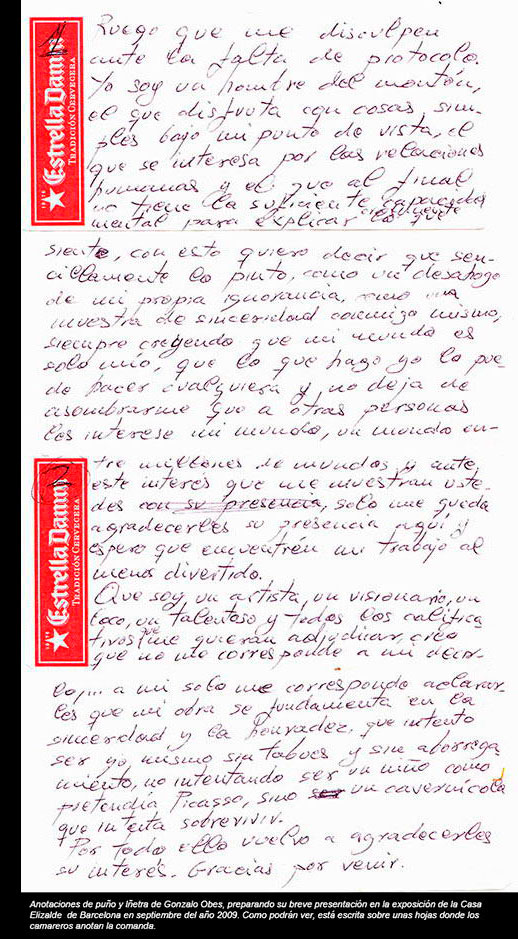 1
Estrella Damm
TRADICIÓN CERVECERA
Ruego que me disculpen
ante la falta de protocolo.
Yo soy un hombre del montón,
el que disfruta con cosas sim-
ples bajo mi punto de vista, el
que se interesa por las relaciones
humanas y el que al final
no tiene la suficiente capacidad
mental para explicar lo que
siente, con esto quiero decir que sen-
cillamente lo pinto, como un desahogo
de mi propia ignorancia, como una
muestra de sinceridad conmigo mismo,
siempre creyendo que mi mundo es
solo mío, que lo que hago yo lo pue-
de hacer cualquiera y no deja de
asombrarme que a otras personas
les interese mi mundo, un mundo en-
2
Estrella Damm
TRADICIÓN CERVECERA
tre millones de mundos y ante
este interés que me muestran uste-
des con su presencia, solo me queda
agradecerles su presencia aquí y
espero que encuentren mi trabajo al
menos divertido.
Que soy un artista, un visionario, un
loco, un talentoso y todos los califica
tivos que me quieran adjudicar, creo
que no me corresponde a mi decir-
lo,... a mi solo me corresponde aclarar
les que mi obra se fundamenta en la
sinceridad y la honradez, que intento
ser yo mismo sin tabues y sin aborrega
miento, no intentando ser un niño como
pretendía Picasso, sino ser un cavernícola
que intenta sobrevivir.
Por todo ello vuelvo a agradecerles
su interés. Gracias por venir.
Anotaciones de puño y lñetra de Gonzalo Obes, preparando su breve presentación en la exposición de la Casa
Elizalde de Barcelona en septiembre del año 2009. Como podrán ver, está escrita sobre unas hojas donde los
camareros anotan la comanda.